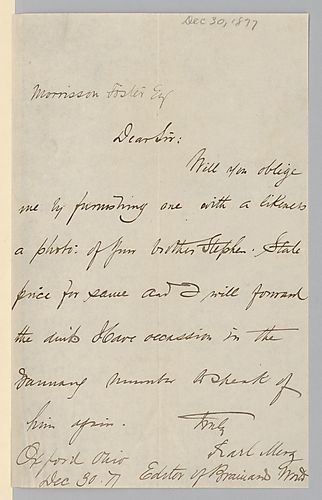 Dec 30, 1877
Morrisson Foster Esq
Dear Sir:
Will you oblige
me by furnishing me with a likeness
a photo: of your brother Stephen. State
price for same and I will forward
the I have occassion in the
January number to speak of
him again.
Truly
Karl Merz
Oxford Ohio Editor of Brainard
Dec 30. 77